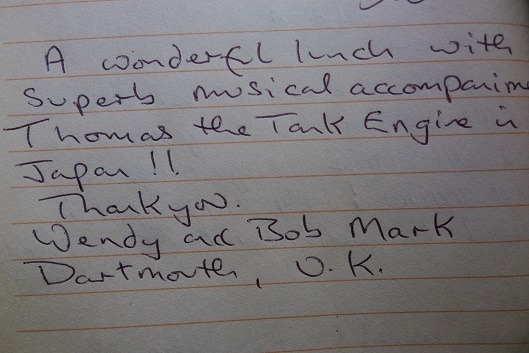 A wonderful lunch with
Superb musical accompanim
Thomas the Tank Engine in
Japan !!
Thank you.
Wendy and Bob Mark
Dartmouth, U.K.